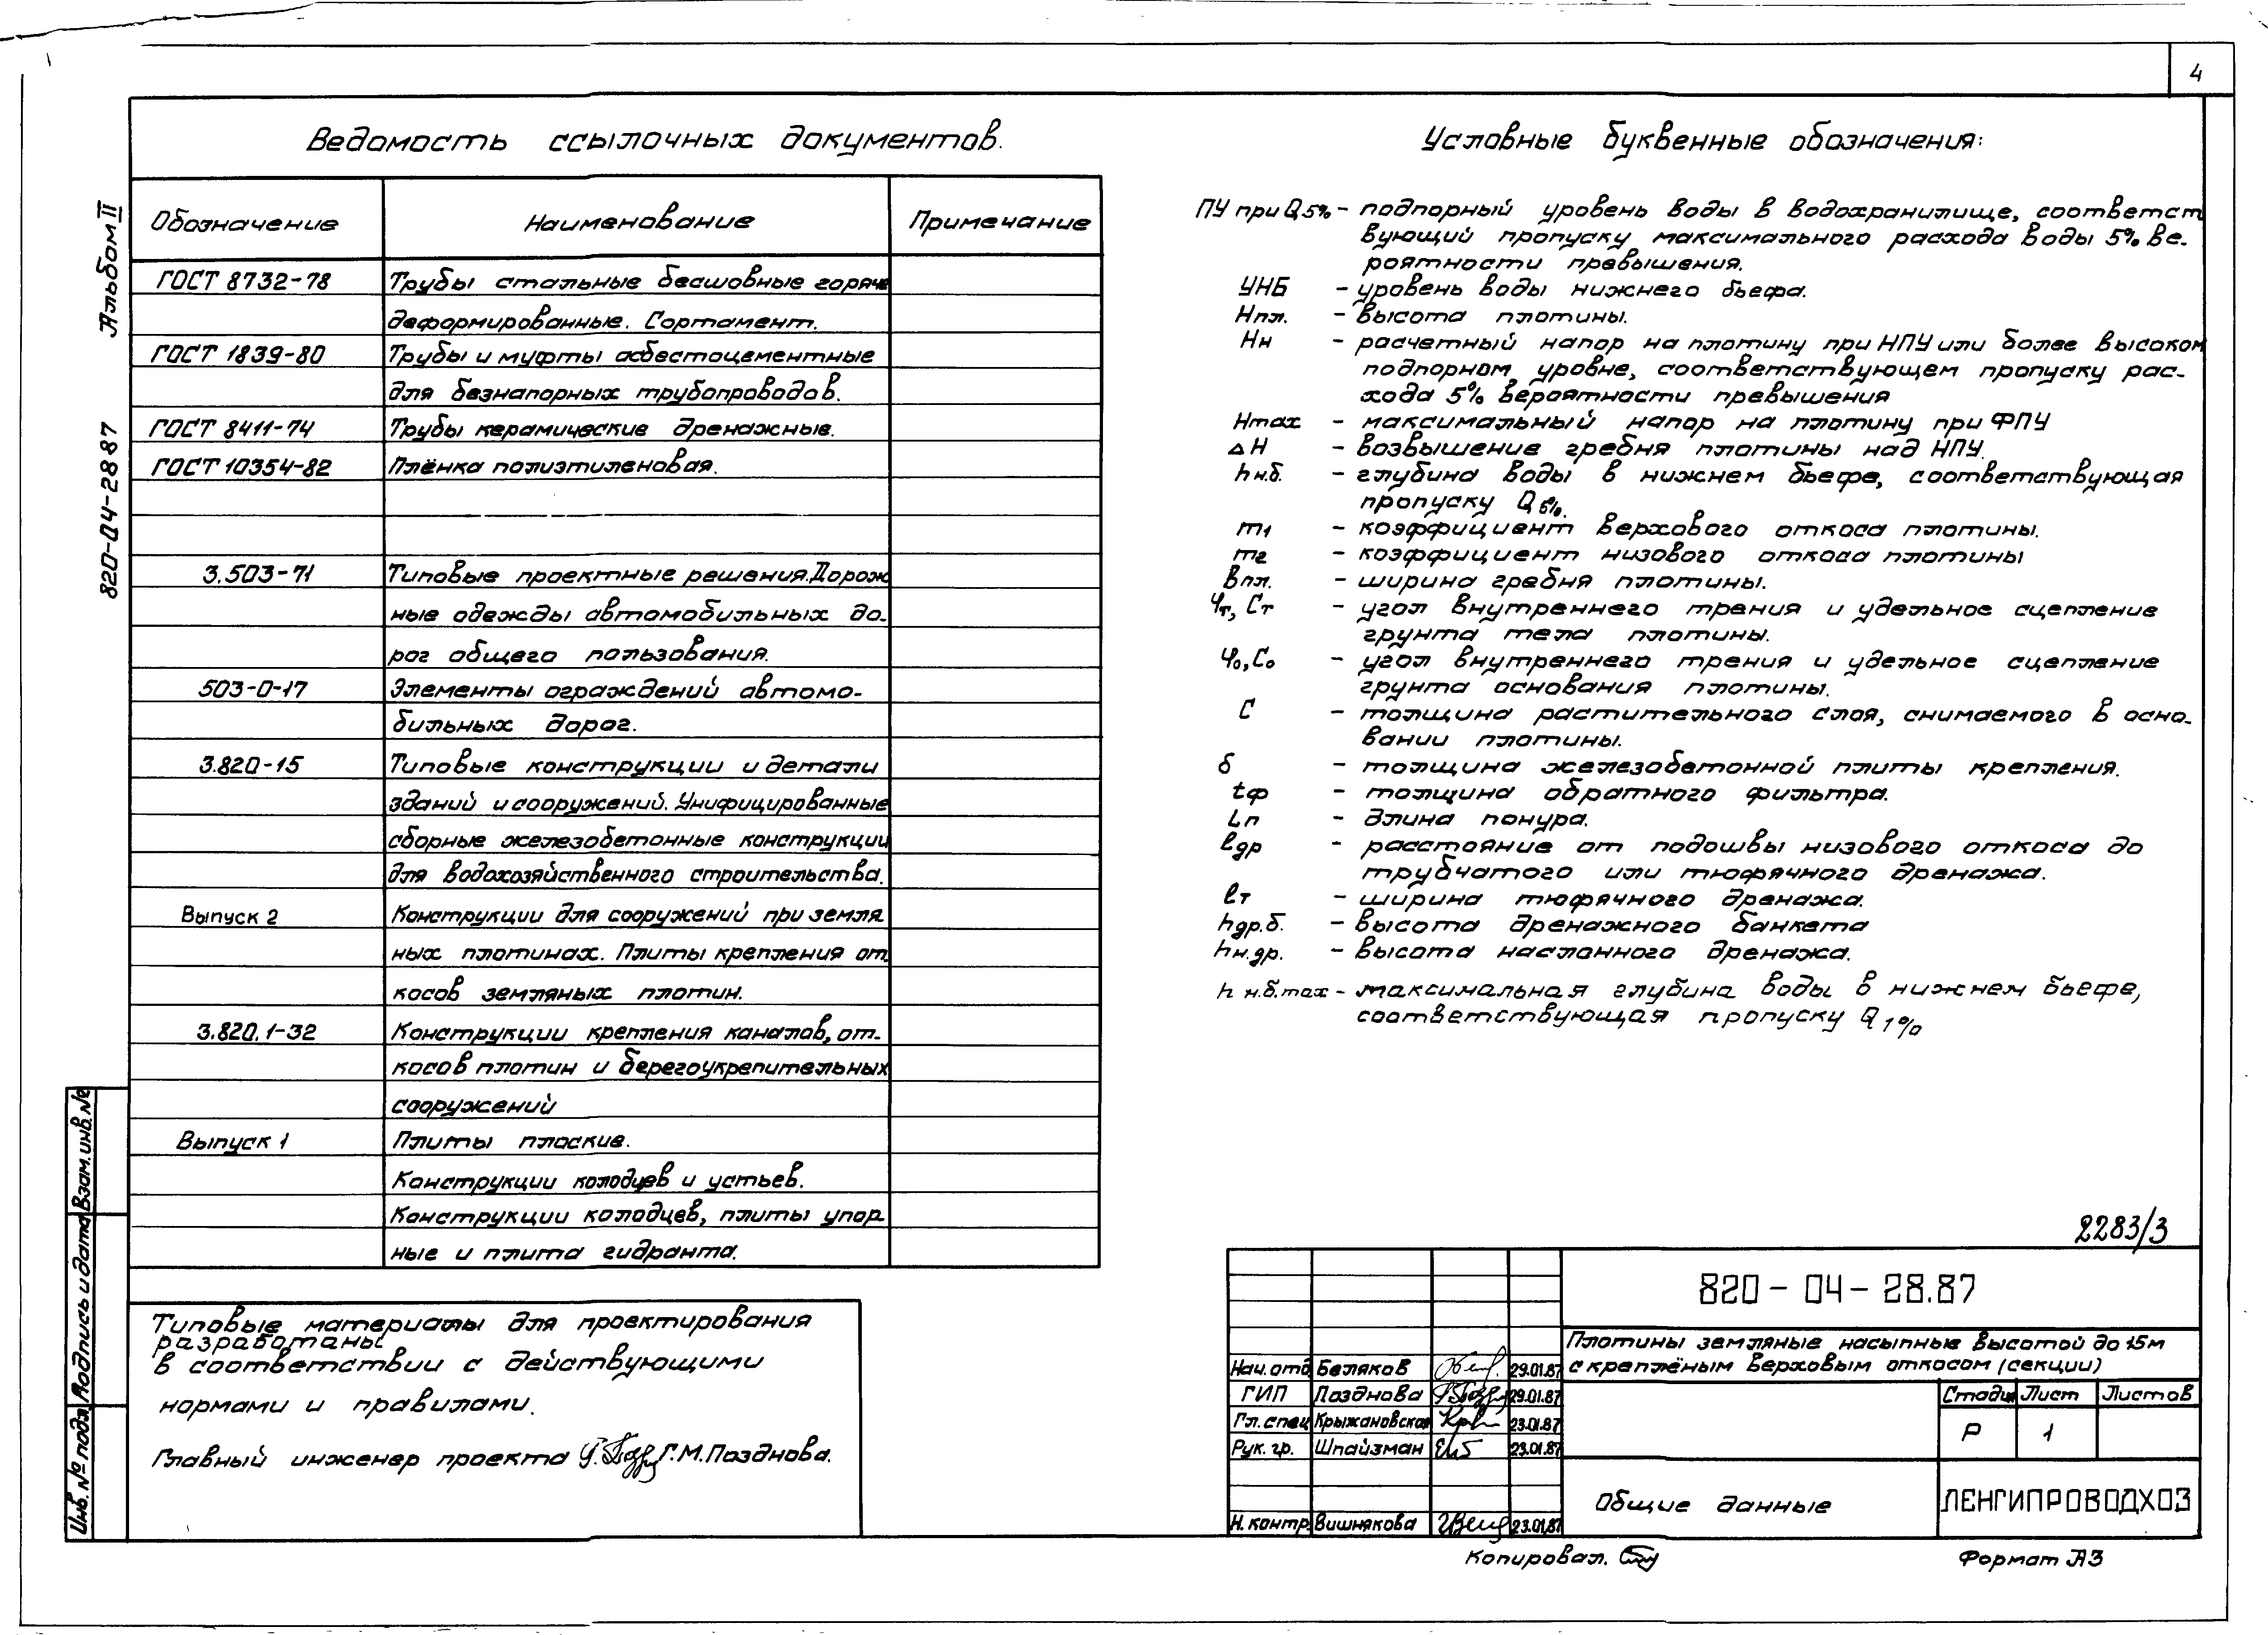 4
Ведомость ссылочных документов.
Обозначение Наименование Примечание
ГОСТ 8732-78 Трубы стальные бесшовные горяче
деформированные. Сортамент.
ГОСТ 1839-80 Трубы и муфты асбестоцементные
для безнапорных трубопроводов.
ГОСТ 8411-74 Трубы керамические дренажные.
ГОСТ 10354-82 Плёнка полиэтиленовая.
3.503-71 Типовые проектные решения. Дорож
ные одежды автомобильных до-
рог общего пользования.
503-0-17 Элементы ограждений автомо-
бильных дорог.
3.820-15 Типовые конструкции и детали
зданий и сооружений. Унифицированные
сборные железобетонные конструкции
для водохозяйственного строительства.
Выпуск 2 Конструкции для сооружений при земля
ных плотинах. Плиты крепления от-
косов земляных плотин.
3.820.1-32 Конструкции крепления каналов, от-
косов плотин и берегоукрепительных
сооружений
Выпуск 1 Плиты плоские.
Конструкции колодцев и устьев.
Конструкции колодцев, плиты упор
ные и плита гидранта.
Типовые материалы для проектирования
разработаны
в соответствии с действующими
нормами и правилами.
Главный инженер проекта Г.М. Позднова.
Условные буквенные обозначения:
ПУ при Q 5% - подпорный уровень воды в водохранилище, соответст
вующий пропуску максимального расхода воды 5% ве-
роятности превышения.
УНБ - уровень воды нижнего бьефа.
Нпл. - высота плотины.
Нн - расчетный напор на плотину при НПУ или более высоком
подпорном уровне, соответствующем пропуску рас-
хода 5% вероятности превышения
Нmax - максимальный напор на плотину при ФПУ
ΔН - возвышение гребня плотины над НПУ.
hн.б. - глубина воды в нижнем бьефе, соответствующая
пропуску Q 5%.
m1 - коэффициент верхового откоса плотины.
m2 - коэффициент низового откоса плотины
Впл. - ширина гребня плотины.
φт, Ст - угол внутреннего трения и удельное сцепление
грунта тела плотины.
φо, Со - угол внутреннего трения и удельное сцепление
грунта основания плотины.
С - толщина растительного слоя, снимаемого в осно-
вании плотины.
δ - толщина железобетонной плиты крепления.
tф - толщина обратного фильтра.
Lп - длина понура.
ℓдр - расстояние от подошвы низового откоса до
трубчатого или тюфячного дренажа.
ℓт - ширина тюфячного дренажа.
hдр.б. - высота дренажного банкета
hн.др. - высота наслонного дренажа.
h н.б.max - максимальная глубина воды в нижнем бьефе,
соответствующая пропуску Q 1%
2283/3
820-04-28.87
Плотины земляные насыпные высотой до 15м
с креплёным верховым откосом (секции)
Нач. отд. Беляков 29.01.87
ГИП Позднова 29.01.87
Гл. спец Крыжановская 23.01.87
Рук. гр. Шпайзман 23.01.87
Н. контр. Вишнякова 23.01.87
Стадия Лист Листов
Р 1
Общие данные
ЛЕНГИПРОВОДХОЗ
Копировал.
Формат А3
Альбом II
820-04-28 87
Взам. инв. №
Подпись и дата
Инв. № подл.